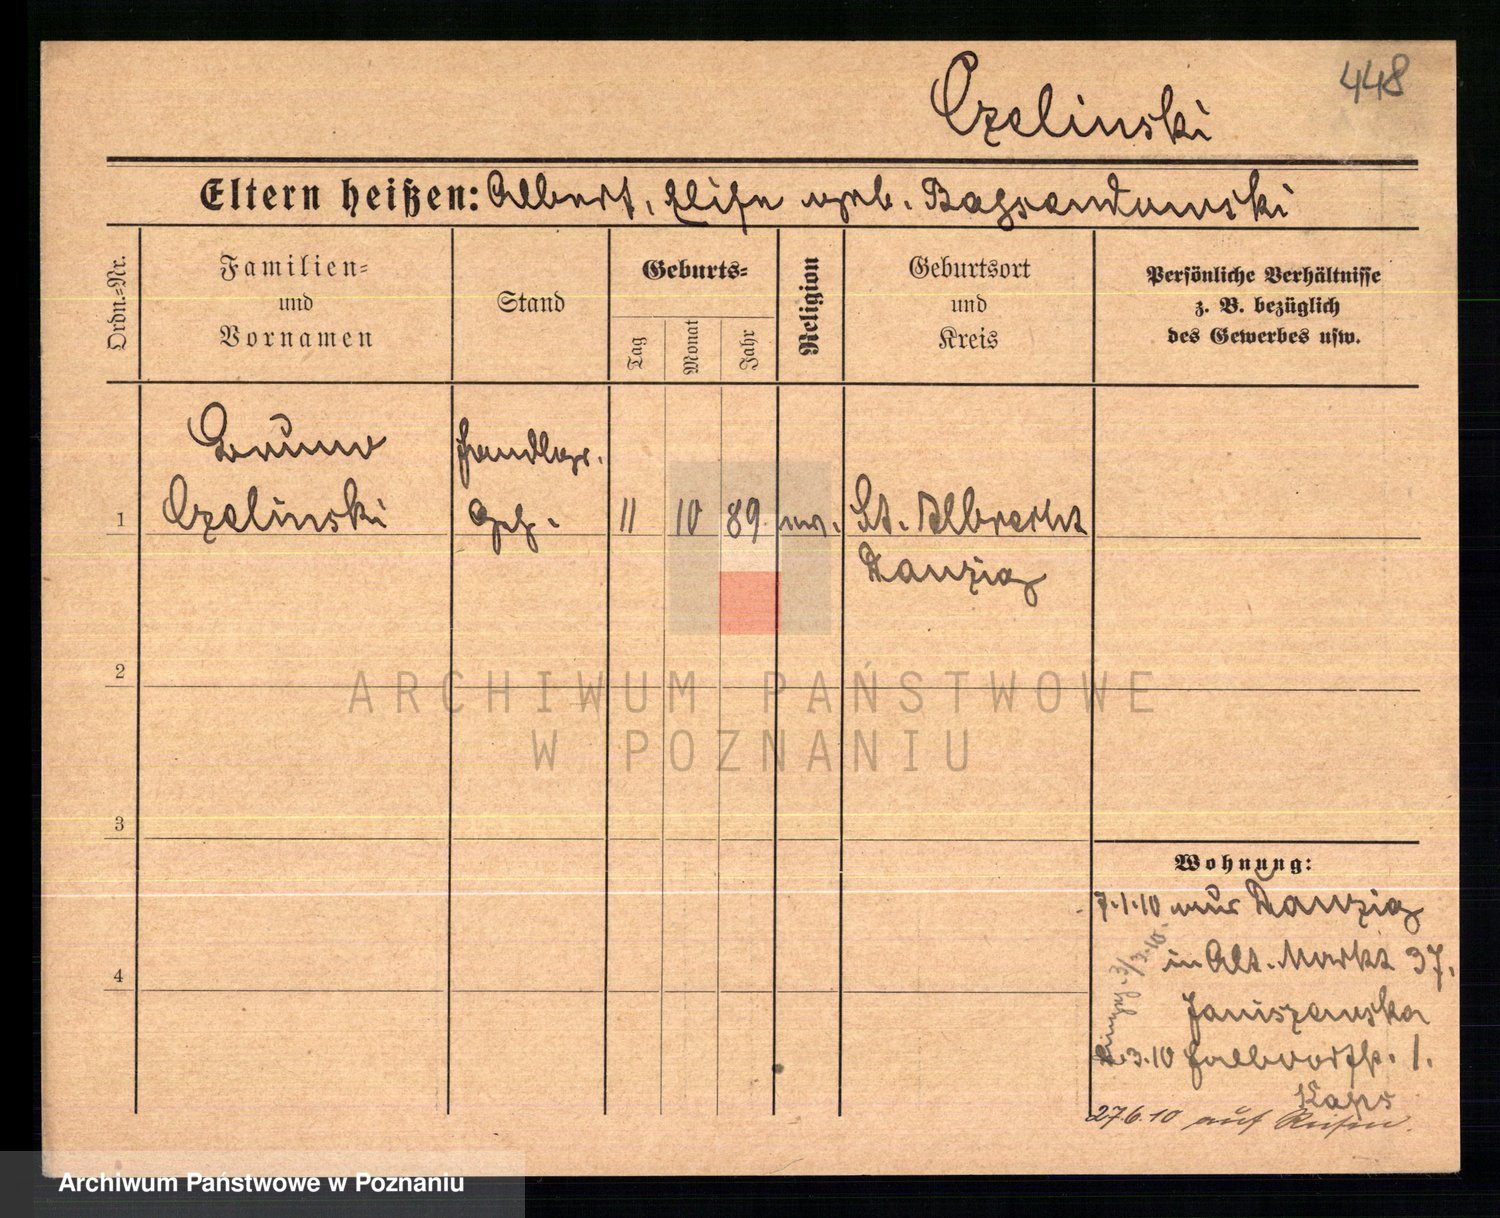 448
Czelinski
Eltern heißen: Albert, Elise geb.
Ordn.=Nr.
Familien=
und
Vornamen
Stand
Geburts=
Tag
Monat
Jahr
Religion
Geburtsort
und
Kreis
Persönliche Verhältnisse
z. B. bezüglich
des Gewerbes usw.
1
Bruno
Czelinski
Handlgs.
Geh.
11
10
89
ev.
St. Albrecht
Danzig
2
3
4
Wohnung:
7.1.10 aus Danzig
in Alt. Markt 37.
Janiszewska
3.10 Halbdorfstr. 1.
27.6.10 auf Reisen.
ARCHIWUM PAŃSTWOWE
W POZNANIU
Archiwum Państwowe w Poznaniu